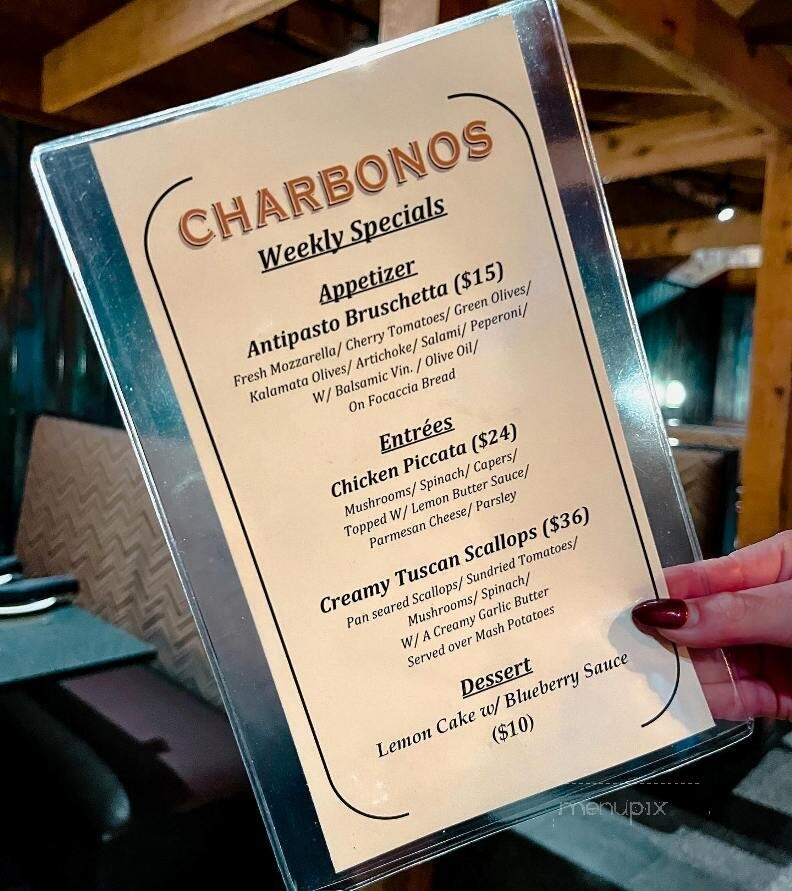 CHARBONOS
Weekly Specials
Appetizer
Antipasto Bruschetta ($15)
Fresh Mozzarella/ Cherry Tomatoes/ Green Olives/
Kalamata Olives/ Artichoke/ Salami/ Peperoni/
W/ Balsamic Vin. / Olive Oil/
On Focaccia Bread
Entrées
Chicken Piccata ($24)
Mushrooms/ Spinach/ Capers/
Topped W/ Lemon Butter Sauce/
Parmesan Cheese/ Parsley
Creamy Tuscan Scallops ($36)
Pan seared Scallops/ Sundried Tomatoes/
Mushrooms/ Spinach/
W/ A Creamy Garlic Butter
Served over Mash Potatoes
Dessert
Lemon Cake w/ Blueberry Sauce
($10)
menupix